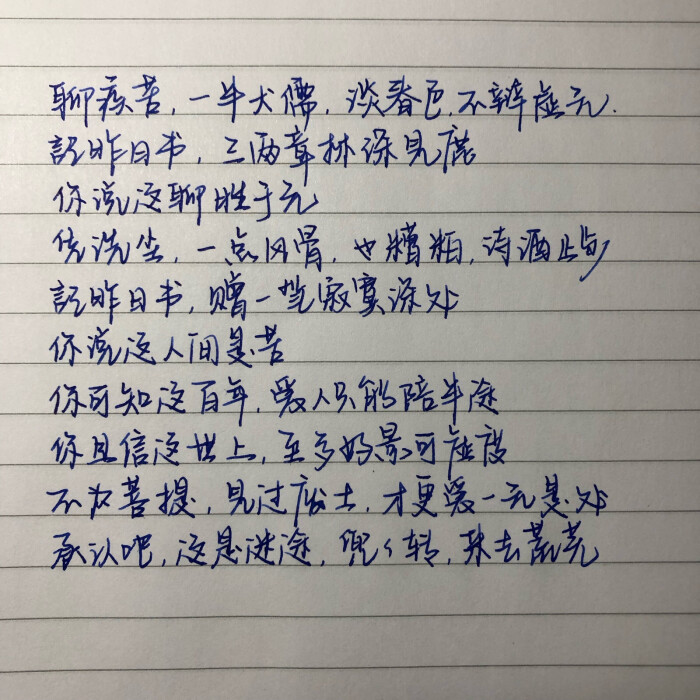 聊疾苦，一半犬儒，淡春色，不辩虚无.
記昨日书，三两章林深见鹿
你说这聊胜于无
凭洗尘，一点风骨，也糟粕，诗酒止与
記昨日书，赠一些寂寞深处
你说这人间是苦
你可知这百年，爱人只能陪半途
你且信这世上，至多好景可虚度
不为菩提，见过废土，才更爱一无是处
承认吧，这是迷途，兜兜转，来去荒芜